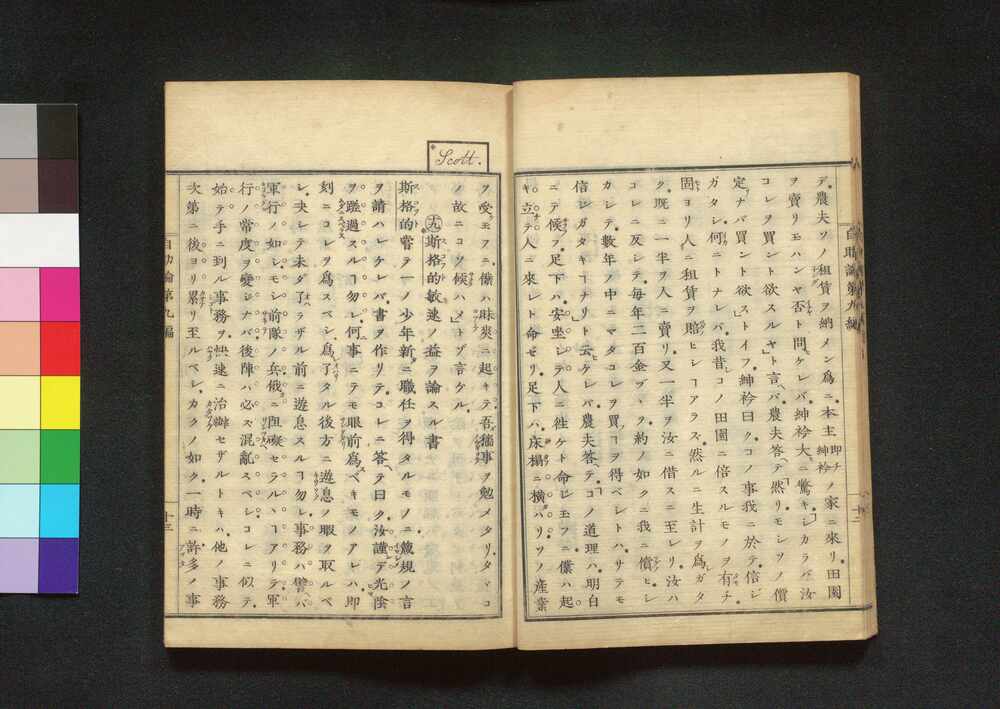 デ農夫ソノ租賃ヲ納メン為ニ本主即チ紳衿ノ家ニ來リ田園
ヲ賣リモハンヤ否ト問ケレバ紳衿大ニ驚キシカラバ汝
コレヲ買ント欲スルヤト言バ農夫答テ然リモシソノ價
定ナバ買ント欲ストイフ紳衿曰クコノ事我ニ於テ信ジ
ガタシ何ニトナレバ我昔コノ田園ニ倍スルモノヲ有チ
固ヨリ人ニ租賃ヲ賠ヒシヿアラズ然ルニ生計ヲ爲ガタ
ク既ニ一半ヲ人ニ賣リ又一半ヲ汝ニ借スニ至レリ汝ハ
コレニ反シテ毎年二百金ヅヽヲ約ノ如クニ我ニ償ヒシ
カシテ數年ノ中ニマタコレヲ買フヿヲ得ベシトハサテモ
信シガタキヿナリト云ケレバ農夫答テコノ道理ハ明白
ニテ候フ足下ハ安坐シテ人ニ往ケト命シ玉フニ僕ハ起
キ立テ人ニ來レト命ゼリ足下ハ床榻ニ横ハリソノ産業
ヲ受モフニ僕ハ昧爽ニ起キテ吾稼事ヲ勉メタリタヾコ
ノ故ニコソ候ハメトゾ言ケル
Scott.
十九 斯格的敏速ノ益ヲ論スル書
斯格的嘗テ一ノ少年新ニ職任ヲ得タルモノニ箴規ノ言
ヲ請ハレケレバ書ヲ作リテコレニ答テ曰ク汝謹デ光陰
ヲ蹉過スルヿ勿レ何事ニテモ眼前爲ベキモノアレハ即
刻ニコレヲ爲スベシ爲了タル後方ニ遊息ノ暇ヲ取ルベ
シ夬レテ未ダ了ラザル前ニ遊息スルヿ勿レ事務ハ譬バ
軍行ノ如シモシ前隊ノ兵俄ニ阻礙セラルヽヿアリテ軍
行ノ常度ヲ變シナバ後陣ハ必ズ混亂スベシコレニ似テ
始テ手ニ到ル事務ヲ快速ニ治辦セザルトキハ他ノ事務
次第ニ後ヨリ累リ至ルベシカクノ如ク一時ニ許多ノ事
自助論第九編
十三
自助論第九編
十二